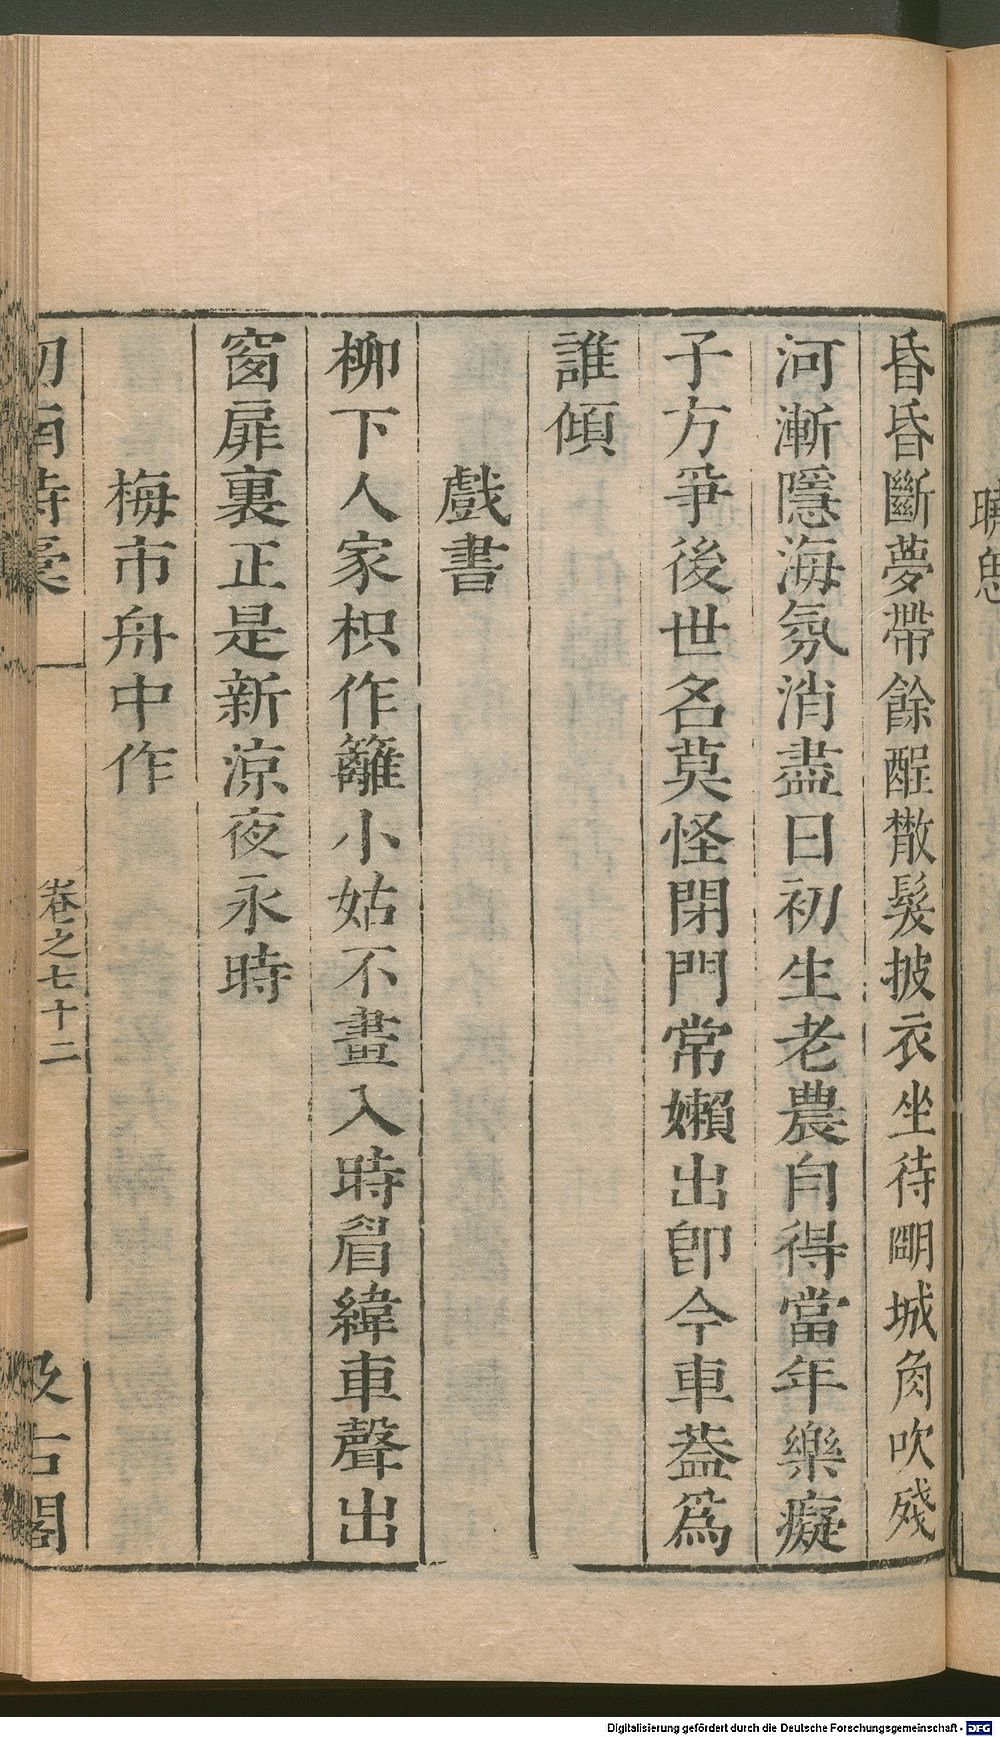 昏昏斷夢帶餘酲散髮披衣坐待明城角吹殘
河漸隱海氛消盡日初生老農自得當年樂癡
子方爭後世名莫怪閉門常嬾出卽今車蓋爲
誰傾
戲書
柳下人家枳作籬小姑不畫入時眉緯車聲出
窗扉裏正是新涼夜永時
梅市舟中作
劒南詩稾
卷之七十二
汲古閣
Digitalisierung gefördert durch die Deutsche Forschungsgemeinschaft - DFG